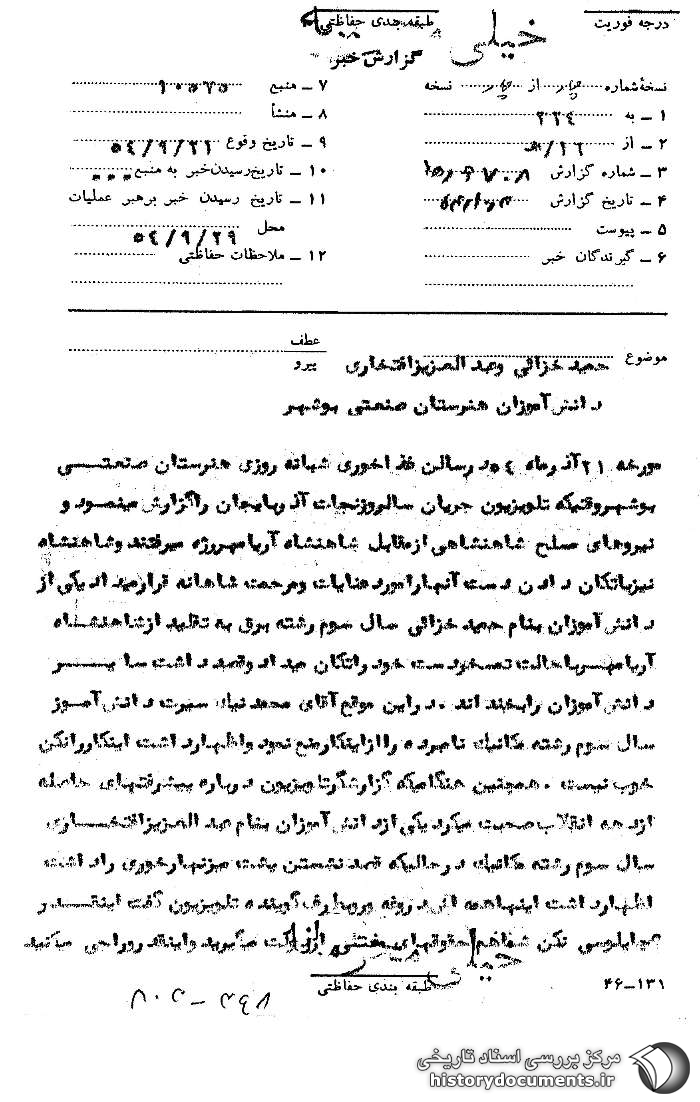 درجه فوریت
طبقه بندی حفاظتی
خیلی
گزارش خبر
نسخه شماره از نسخه
۱ - به ۳۳٤
۲ - از ۱۶/ه
۳ - شماره گزارش
۴ - تاریخ گزارش
۵ - پیوست
۶ - گیرندگان خبر
۷ - منبع ۱۰۵۷۵
۸ - منشأ
۹ - تاریخ وقوع ۵٤/۹/۲۱
۱۰ - تاریخ رسیدن خبر به منبع
۱۱ - تاریخ رسیدن خبر برهبر عملیات
محل ۵٤/۹/۲۹
۱۲ - ملاحظات حفاظتی
عطف
پیرو
موضوع حمید خزائی وعبد العزیز افتخاری
دانش آموزان هنرستان صنعتی بوشهر
مورخه ۲۱ آذرماه ۵٤ در سالن غذاخوری شبانه روزی هنرستان صنعتی
بوشهر وقتیکه تلویزیون جریان سالروز نجات آذربایجان را گزارش مینمود و
نیروهای مسلح شاهنشاهی از مقابل شاهنشاه آریامهر رژه میرفتند وشاهنشاه
نیز باتکان دادن دست آنها را مورد عنایات ومرحمت شاهانه قرار میداد یکی از
دانش آموزان بنام حمید خزائی سال سوم رشته برق به تقلید از شاهنشاه
آریامهر با حالت تمسخر دست خود را تکان میداد و قصد داشت سایر
دانش آموزان را بخنداند . در این موقع آقای محمد نیک سیرت دانش آموز
سال سوم رشته مکانیک نامبرده را از اینکار منع نمود و اظهار داشت اینکار را نکن
خوب نیست . همچنین هنگامیکه گزارشگر تلویزیون درباره پیشرفتهای حاصله
از دهه انقلاب صحبت میکرد یکی از دانش آموزان بنام عبد العزیز افتخاری
سال سوم رشته مکانیک در حالیکه قصد نشستن پشت میز نهارخوری را داشت
اظهار داشت اینها همه اش دروغه ورو بطرف گوینده تلویزیون گفت اینقدر
چاپلوسی نکن شما هم حقوقهای از میگیرید واینقدر وراجی میکنید
خیلی
طبقه بندی حفاظتی
۴۶-۱۳۱
مرکز بررسی اسناد تاریخی
historydocuments.ir